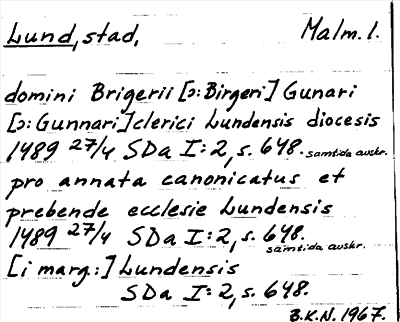 Lund, stad, Malm. l.
domini Brigerii [ɔ: Birgeri] Gunari
[ɔ: Gunnari] clerici Lundensis diocesis
1489 27/4 SDa I:2, s. 648. samtida avskr.
pro annata canonicatus et
prebende ecclesie Lundensis
1489 27/4 SDa I:2, s. 648.
samtida avskr.
[i marg.:] Lundensis
SDa I:2, s. 648.
B.K.N. 1967.